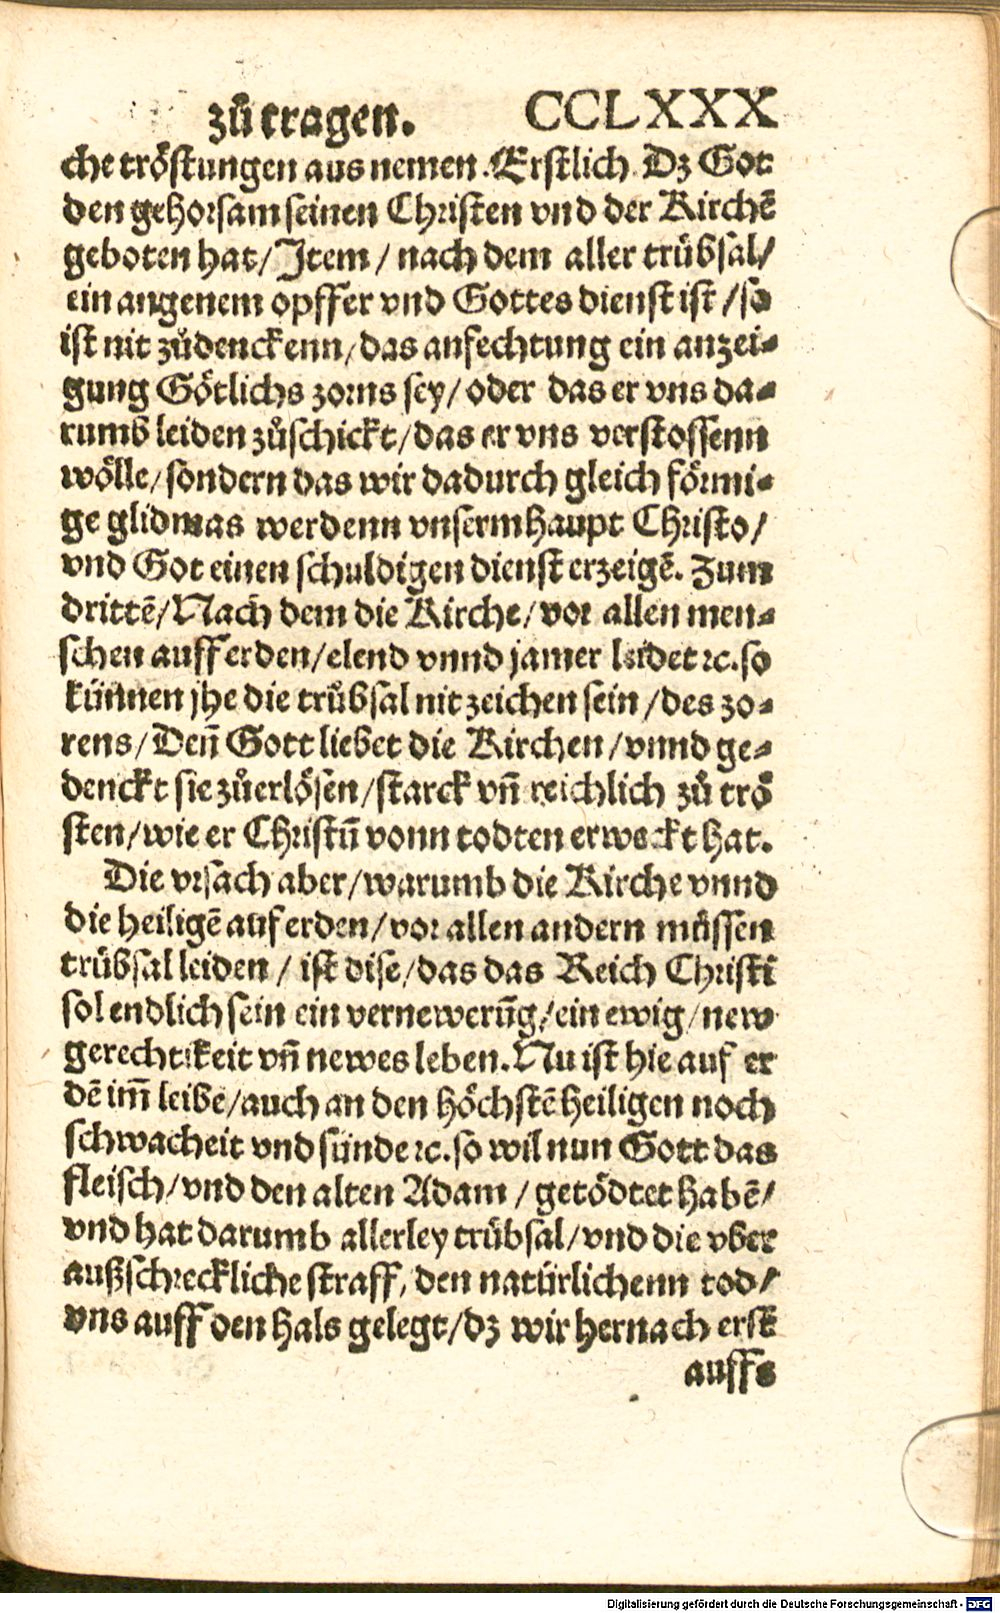 zů tragen. CCLXXX
che tröstungen aus nemen. Erstlich Dz Got
den gehorsam seinen Christen vnd der Kirchē
geboten hat / Item / nach dem aller trübsal /
ein angenem opffer vnd Gottes dienst ist / so
ist nit zůdenckenn / das anfechtung ein anzei⸗
gung Götlichs zorns sey / oder das er vns da⸗
rumb leiden zůschickt / das er vns verstossenn
wölle / sondern das wir dadurch gleich förmi⸗
ge glidmas werdenn vnserm haupt Christo /
vnd Got einen schuldigen dienst erzeigē. Zum
drittē / Nach dem die Kirche / vor allen men⸗
schen auff erden / elend vnnd jamer leidet ꝛc. so
künnen jhe die trůbsal nit zeichen sein / des zo⸗
rens / Deñ Gott liebet die Kirchen / vnnd ge⸗
denckt sie zůerlösen / starck vñ reichlich zů trö
sten / wie er Christū vonn todten erweckt hat.
Die vrsach aber / warumb die Kirche vnnd
die heiligē auf erden / vor allen andern můssen
trübsal leiden / ist dise / das das Reich Christi
sol endlich sein ein vernewerūg / ein ewig / new
gerechtikeit vñ newes leben. Nu ist hie auf er
dē im̄ leibe / auch an den höchstē heiligen noch
schwacheit vnd sünde ꝛc. so wil nun Gott das
fleisch / vnd den alten Adam / getödtet habē /
vnd hat darumb allerley trübsal / vnd die vber
außschreckliche straff, den natürlichenn tod /
vns auff den hals gelegt / dz wir hernach erst
auffs
Digitalisierung gefördert durch die Deutsche Forschungsgemeinschaft - DFG